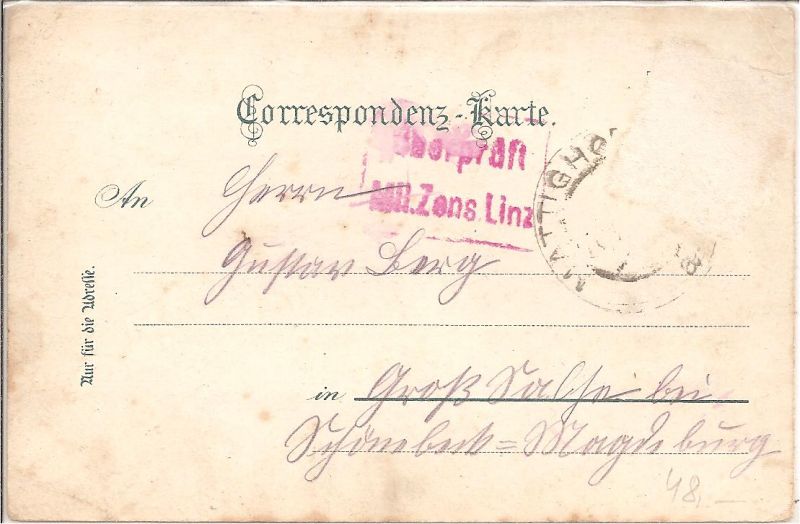 Correspondenz-Karte.
Überprüft
Mil.Zens.Linz
MATTIGHO
An Herrn
Gustav Berg
Nur für die Adresse.
in Groß Salze bei
Schönebeck=Magdeburg
48,—